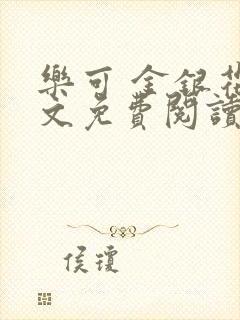 樂可 金銀花
文免費閱讀
侯瓊